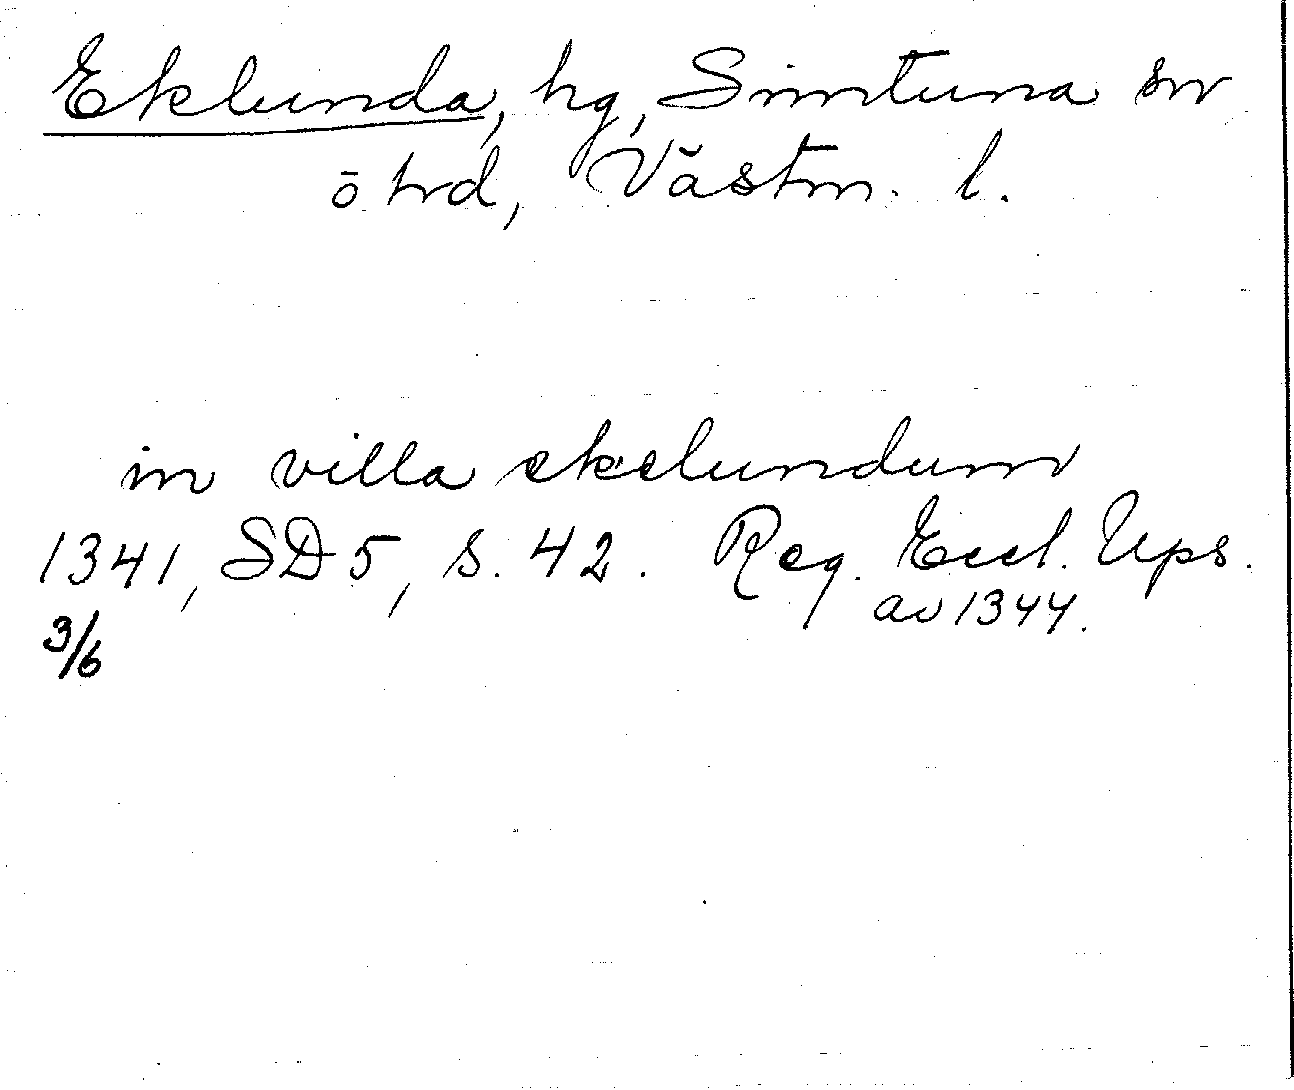 Eklunda, hg, Simtuna sn
o hrd, Västm. l.
in villa ekelundum
1341, SD 5, s. 42. Reg. Eccl. Ups.
av 1344.
3/6